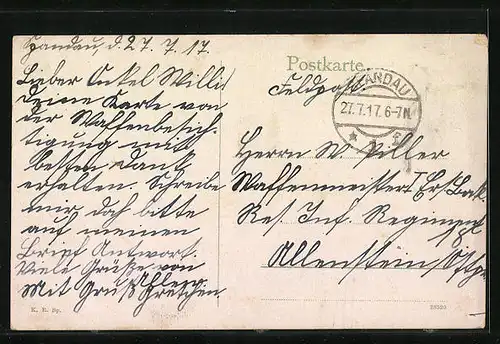 Spandau, d. 27. 7. 17.
Lieber Onkel Willi!
deine Karte von
der Waffenbesich-
tigung mit
besten Dank
erhalten. Schreibe
mir doch bitte
auf meinen
Brief Antwort.
Viele Grüße von
Mit Gruß Gretchen.
K. K. Bg.
Postkarte
Feldpost.
SPANDAU
27.7.17. 6-7N.
Herrn W.
Waffenmeister Ers. Batl.
Res. Inf. Regiment
Allenstein Ostpr.